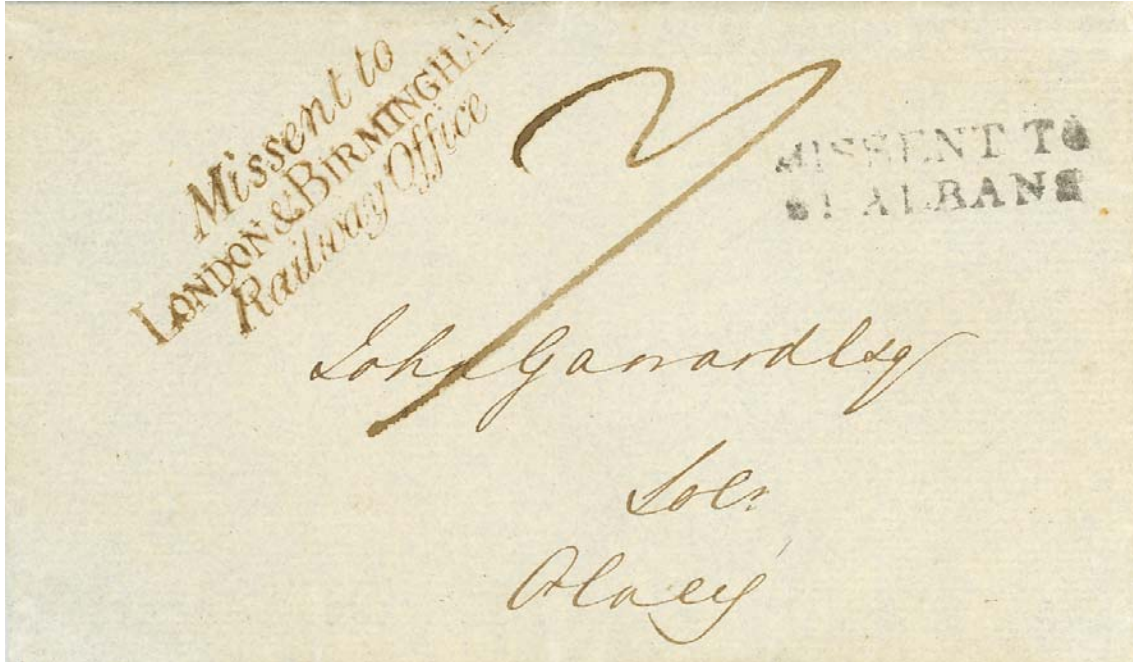 Missent to
LONDON & BIRMINGHAM
Railway Office
MISSENT TO
ST ALBANS
7
John Garrard Esq
Solr
Olney